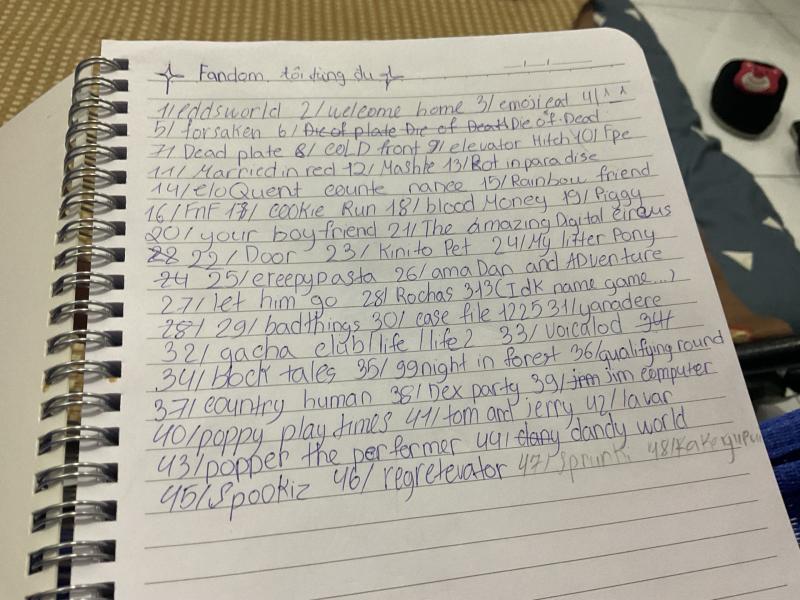 Fandom tôi từng đu
1/eddsworld 2/welcome home 3/emosieat 4/^_^
5/forsaken 6/ Die of plate Die of Death Die of Dead
7/ Dead plate 8/ COLD front 9/elevator Hitch 10/ Fpe
11/ Married in red 12/ Mashle 13/Rot in paradise
14/eloQuent counte nance 15/Rainbow friend
16/FnF 17/ COOKie Run 18/blood Money 19/Piggy
20/your boyfriend 21/The amazing Digital circus
22/ Door 23/ Kinito Pet 24/My litter Pony
24 25/creepypasta 26/ama Dan and ADventure
27/let him go 28/ Rochas 313 (Idk name game...)
28/ 29/badthings 30/ case file 1225 31/yanadere
32/ gacha club/life/life2 33/ voicalod 34/
34/block tales 35/ 99night in forest 36/qualifying round
37/country human 38/Dex party 39/ jim computer
40/poppy play times 41/tom and jerry 42/lavar
43/popper the performer 44/ dany dandy world
45/Spookiz 46/ regretevator 47/ Sprunki 48/